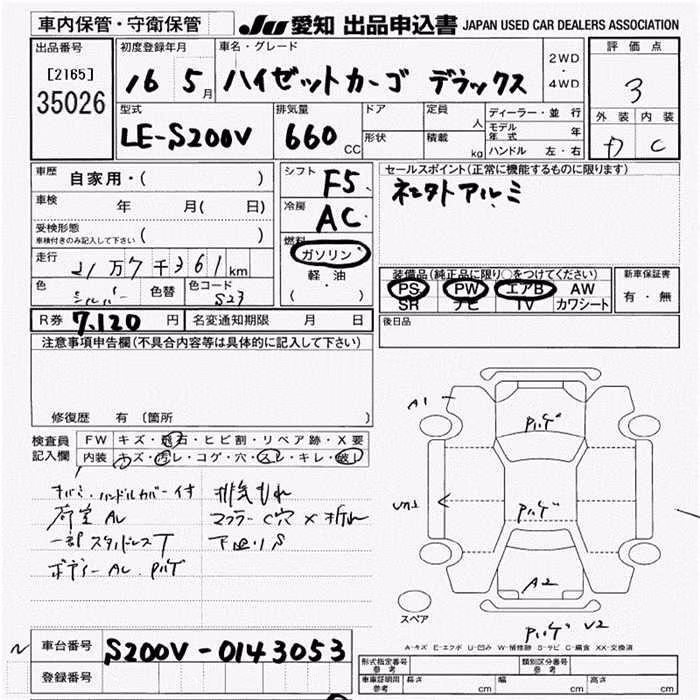 車内保管・守衛保管
JU 愛知 出品申込書 JAPAN USED CAR DEALERS ASSOCIATION
出品番号
[2165]
35026
初度登録年月
16 5月
車名・グレード
ハイゼットカーゴ デラックス
2WD
・
4WD
評価点
3
外装 内装
D C
型式
LE-S200V
排気量
660 CC
ドア
形状
定員 人
積載 kg
ディーラー・並行
モデル年式 年
ハンドル 左・右
車歴 自家用・( )
車検 年 月( 日)
受検形態
車検付きのみ記入して下さい ( )
走行 21万7千361km
色 シルバー 色替 色コード S23
シフト F5
冷房 AC
燃料
ガソリン
軽油
( )
セールスポイント(正常に機能するものに限ります)
キーレス
装備品(純正品に限り○をつけてください)
PS PW エアB AW
SR ナビ TV カワシート
新車保証書
有・無
R券 7,120円 名変通知期限 月 日
後日品
注意事項申告欄(不具合内容等は具体的に記入して下さい)
修復歴 有 〔箇所
検査員記入欄
FW キズ・飛石・ヒビ割・リペア跡・X要
内装 キズ・汚レ・コゲ・穴・スレ・キレ・破レ
キバミ・ハンドルカバー付 排気もれ
荷室AU マフラーC穴×折れ
一部スタッドレスT 下回りS
ボディーAU
A1
A2
U2
スペア
A-キズ E-エクボ U-凹み W-補修跡 S-サビ C-腐食 XX-交換済
車台番号 S200V-0143053
登録番号
型式指定番号 参考
類別区分番号 参考
車庫証明用 参考 長さ cm 幅 cm 高さ cm